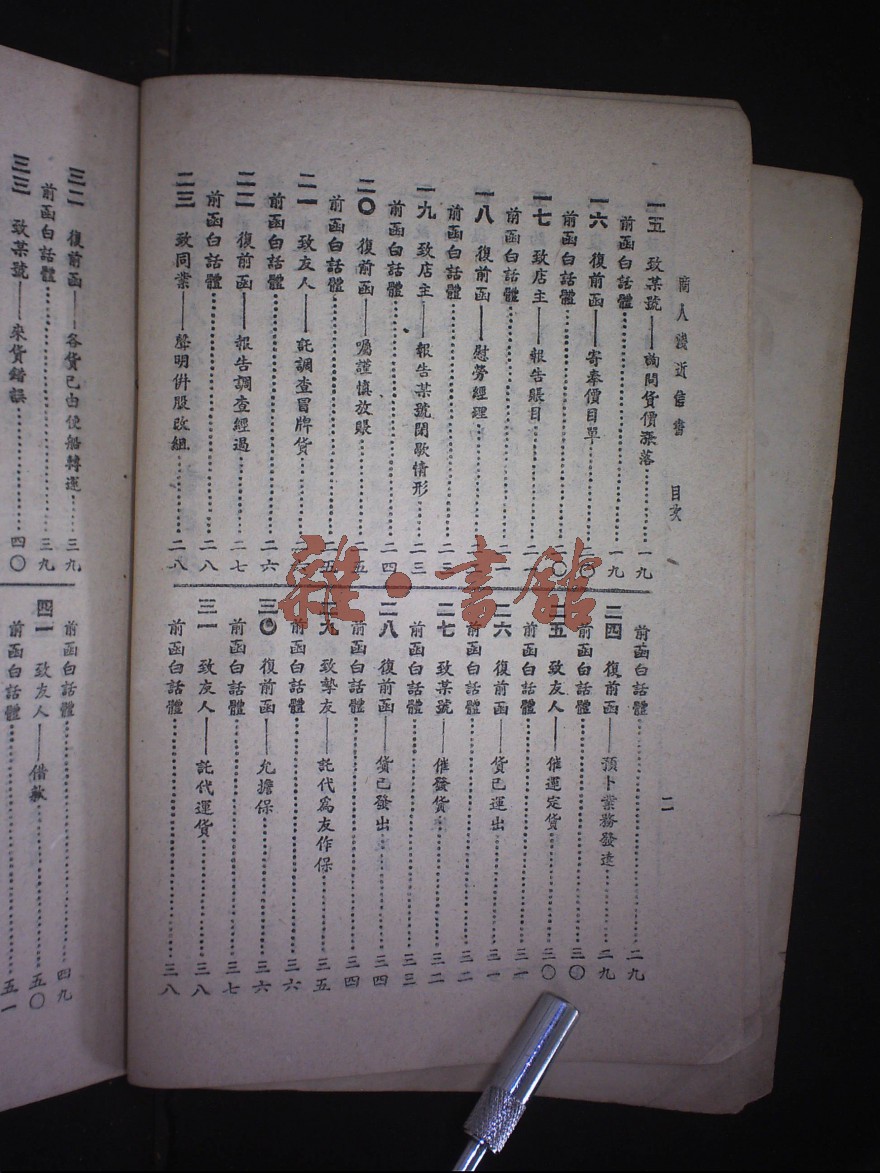 商人淺近信書　目次　二
一五　致某號——詢問貨價漲落……一九
前函白話體……一九
一六　復前函——寄奉價目單……二〇
前函白話體……二〇
一七　致店主——報告賬目……二一
前函白話體……二
一八　復前函——慰勞經理……二
前函白話體……二三
一九　致店主——報告某號閉歇情形……二三
前函白話體……二四
二〇　復前函——囑謹慎放賬……二五
前函白話體……二五
二一　致友人——託調查冒牌貨……二
前函白話體……二六
二二　復前函——報告調查經過……二七
前函白話體……二八
二三　致同業——聲明併股改組……二八
前函白話體……二九
二四　復前函——預卜業務發達……二九
前函白話體……三〇
二五　致友人——催運定貨……三〇
前函白話體……三一
二六　復前函——貨已運出……三一
前函白話體……三二
二七　致某號——催發貨……三二
前函白話體……三三
二八　復前函——貨已發出……三四
前函白話體……三四
二九　致摯友——託代為友作保……三五
前函白話體……三六
三〇　復前函——允擔保……三六
前函白話體……三七
三一　致友人——託代運貨……三八
前函白話體……三八
三二　復前函——各貨已由便船轉運……三九
前函白話體……三九
三三　致某號——來貨錯誤……四〇
前函白話體……四九
四一　致友人——借款……五〇
前函白話體……五一
雜·書館